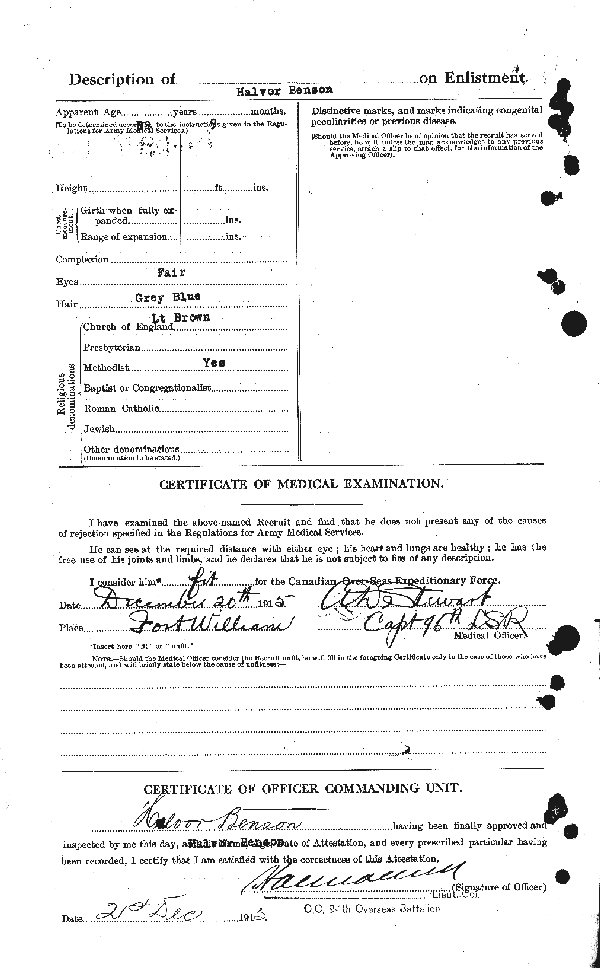 Description of Halvor Benson on Enlistment.
Apparent Age years months.
(To be determined according to the instructions given in the Regulations for Army Medical Services.)
Height ft. ins.
Chest measurement
Girth when fully expanded ins.
Range of expansion ins.
Complexion
Fair
Eyes
Grey Blue
Hair
Lt Brown
Religious denominations
Church of England
Presbyterian
Methodist Yes
Baptist or Congregationalist
Roman Catholic
Jewish
Other denominations
(Denomination to be stated.)
Distinctive marks, and marks indicating congenital
peculiarities or previous disease.
(Should the Medical Officer be of opinion that the recruit has served
before, he will, unless the man acknowledges to any previous
service, attach a slip to that effect, for the information of the
Approving Officer).
CERTIFICATE OF MEDICAL EXAMINATION.
I have examined the above-named Recruit and find that he does not present any of the causes
of rejection specified in the Regulations for Army Medical Services.
He can see at the required distance with either eye; his heart and lungs are healthy; he has the
free use of his joints and limbs, and he declares that he is not subject to fits of any description.
I consider him* fit for the Canadian Over-Seas Expeditionary Force.
Date December 20th 1915
Place Fort William Capt 96th
Medical Officer.
*Insert here "fit" or "unfit."
NOTE.—Should the Medical Officer consider the Recruit unfit, he will fill in the foregoing Certificate only in the case of those who have
been attested, and will briefly state below the cause of unfitness:—
CERTIFICATE OF OFFICER COMMANDING UNIT.
Halvor Benson having been finally approved and
inspected by me this day, Halvor Benson Date of Attestation, and every prescribed particular having
been recorded, I certify that I am satisfied with the correctness of this Attestation.
(Signature of Officer)
Lieut. Col.
O.C. 94th Overseas Battalion
Date 21st Dec 1915